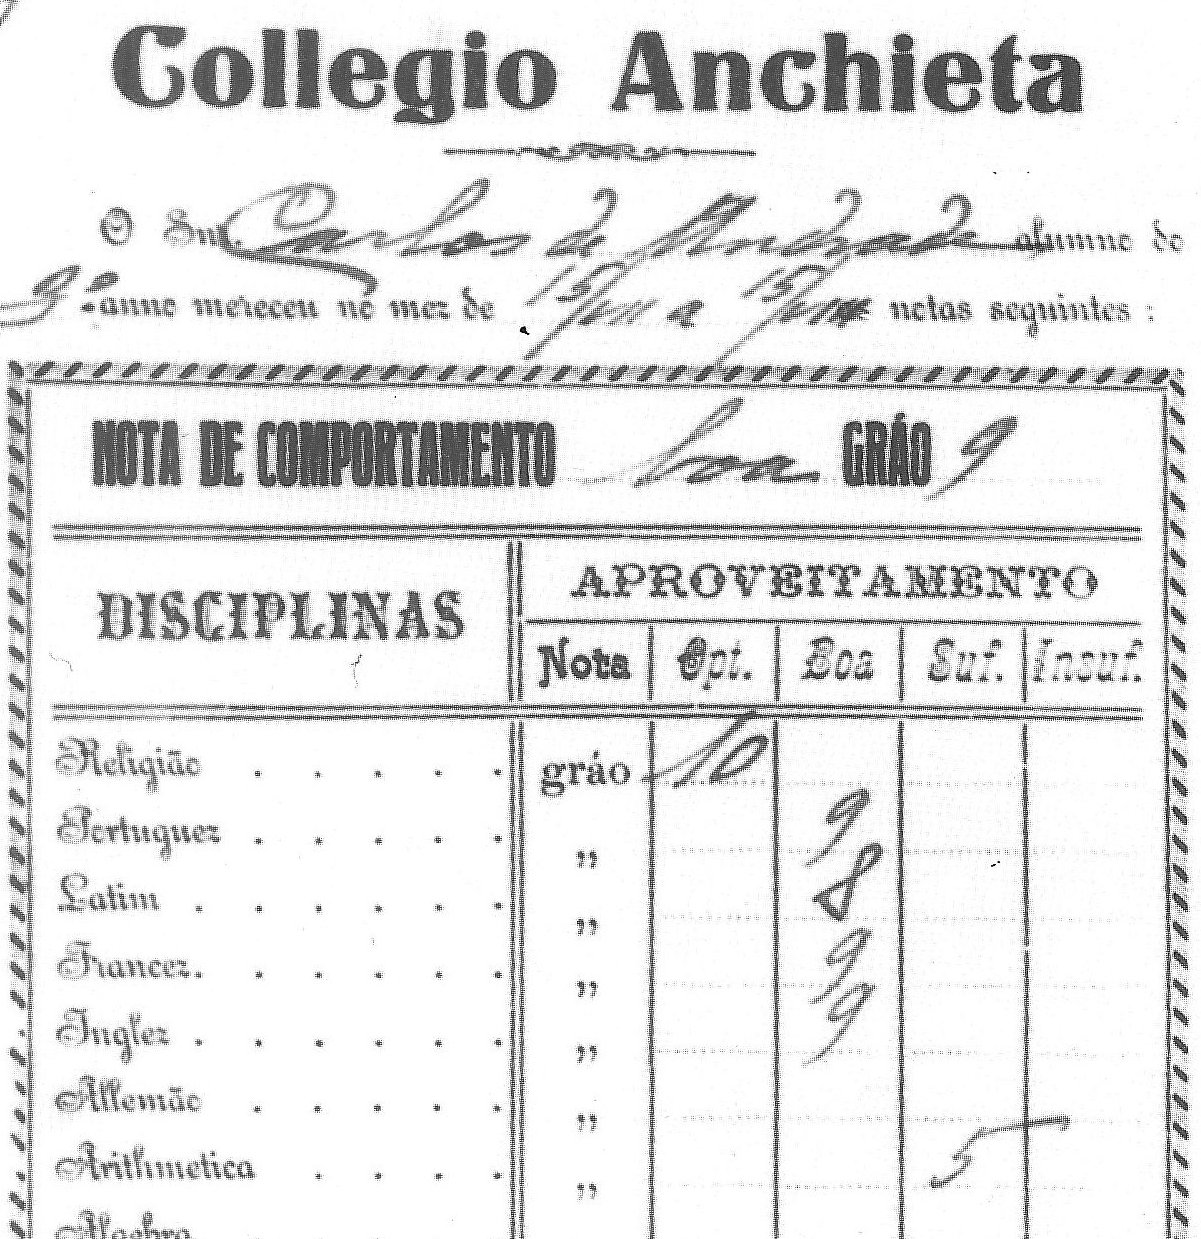 Collegio Anchieta
O Snr. Carlos de Andrade alumno do
3º anno mereceu no mez de 15/ a 15/ notas seguintes :
NOTA DE COMPORTAMENTO boa GRÁO 9
DISCIPLINAS APROVEITAMENTO
Nota Opt. Boa Suf. Insuf.
Religião . . . . . gráo 10
Portuguez . . . . . „ 9
Latim . . . . . . „ 8
Francez . . . . . . „ 9
Inglez . . . . . . „ 9
Allemão . . . . . „
Arithmetica . . . . „ 5
Algebra